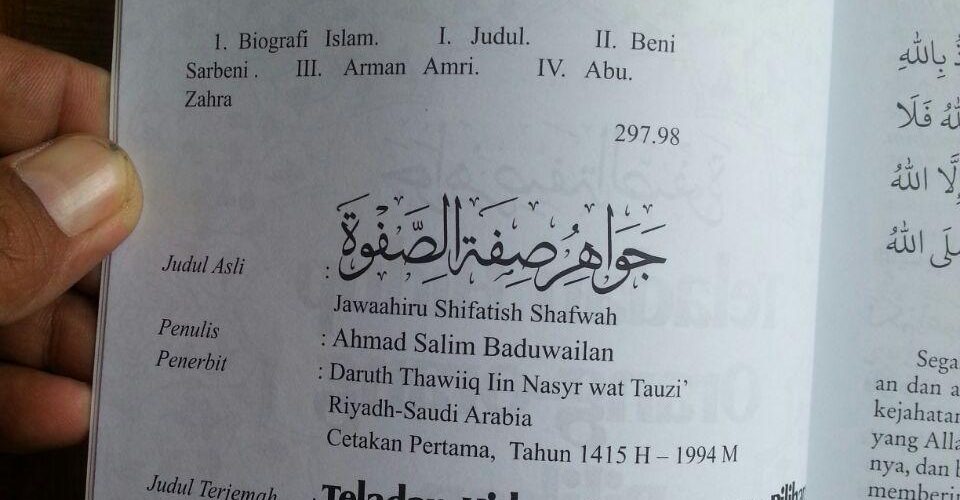 1. Biografi Islam. I. Judul. II. Beni
Sarbeni. III. Arman Amri. IV. Abu.
Zahra
297.98
Judul Asli : جَوَاهِرُ صِفَةِ الصَّفْوَةِ
Jawaahiru Shifatish Shafwah
Penulis : Ahmad Salim Baduwailan
Penerbit : Daruth Thawiiq Iin Nasyr wat Tauzi'
Riyadh-Saudi Arabia
Cetakan Pertama, Tahun 1415 H – 1994 M
Judul Terjemah : Teladan
بِاللهِ
فَلَا
إِلَّا اللهُ
اللهُ
Sega
an dan a
kejahatan
yang Alla
nya, dan
memberi